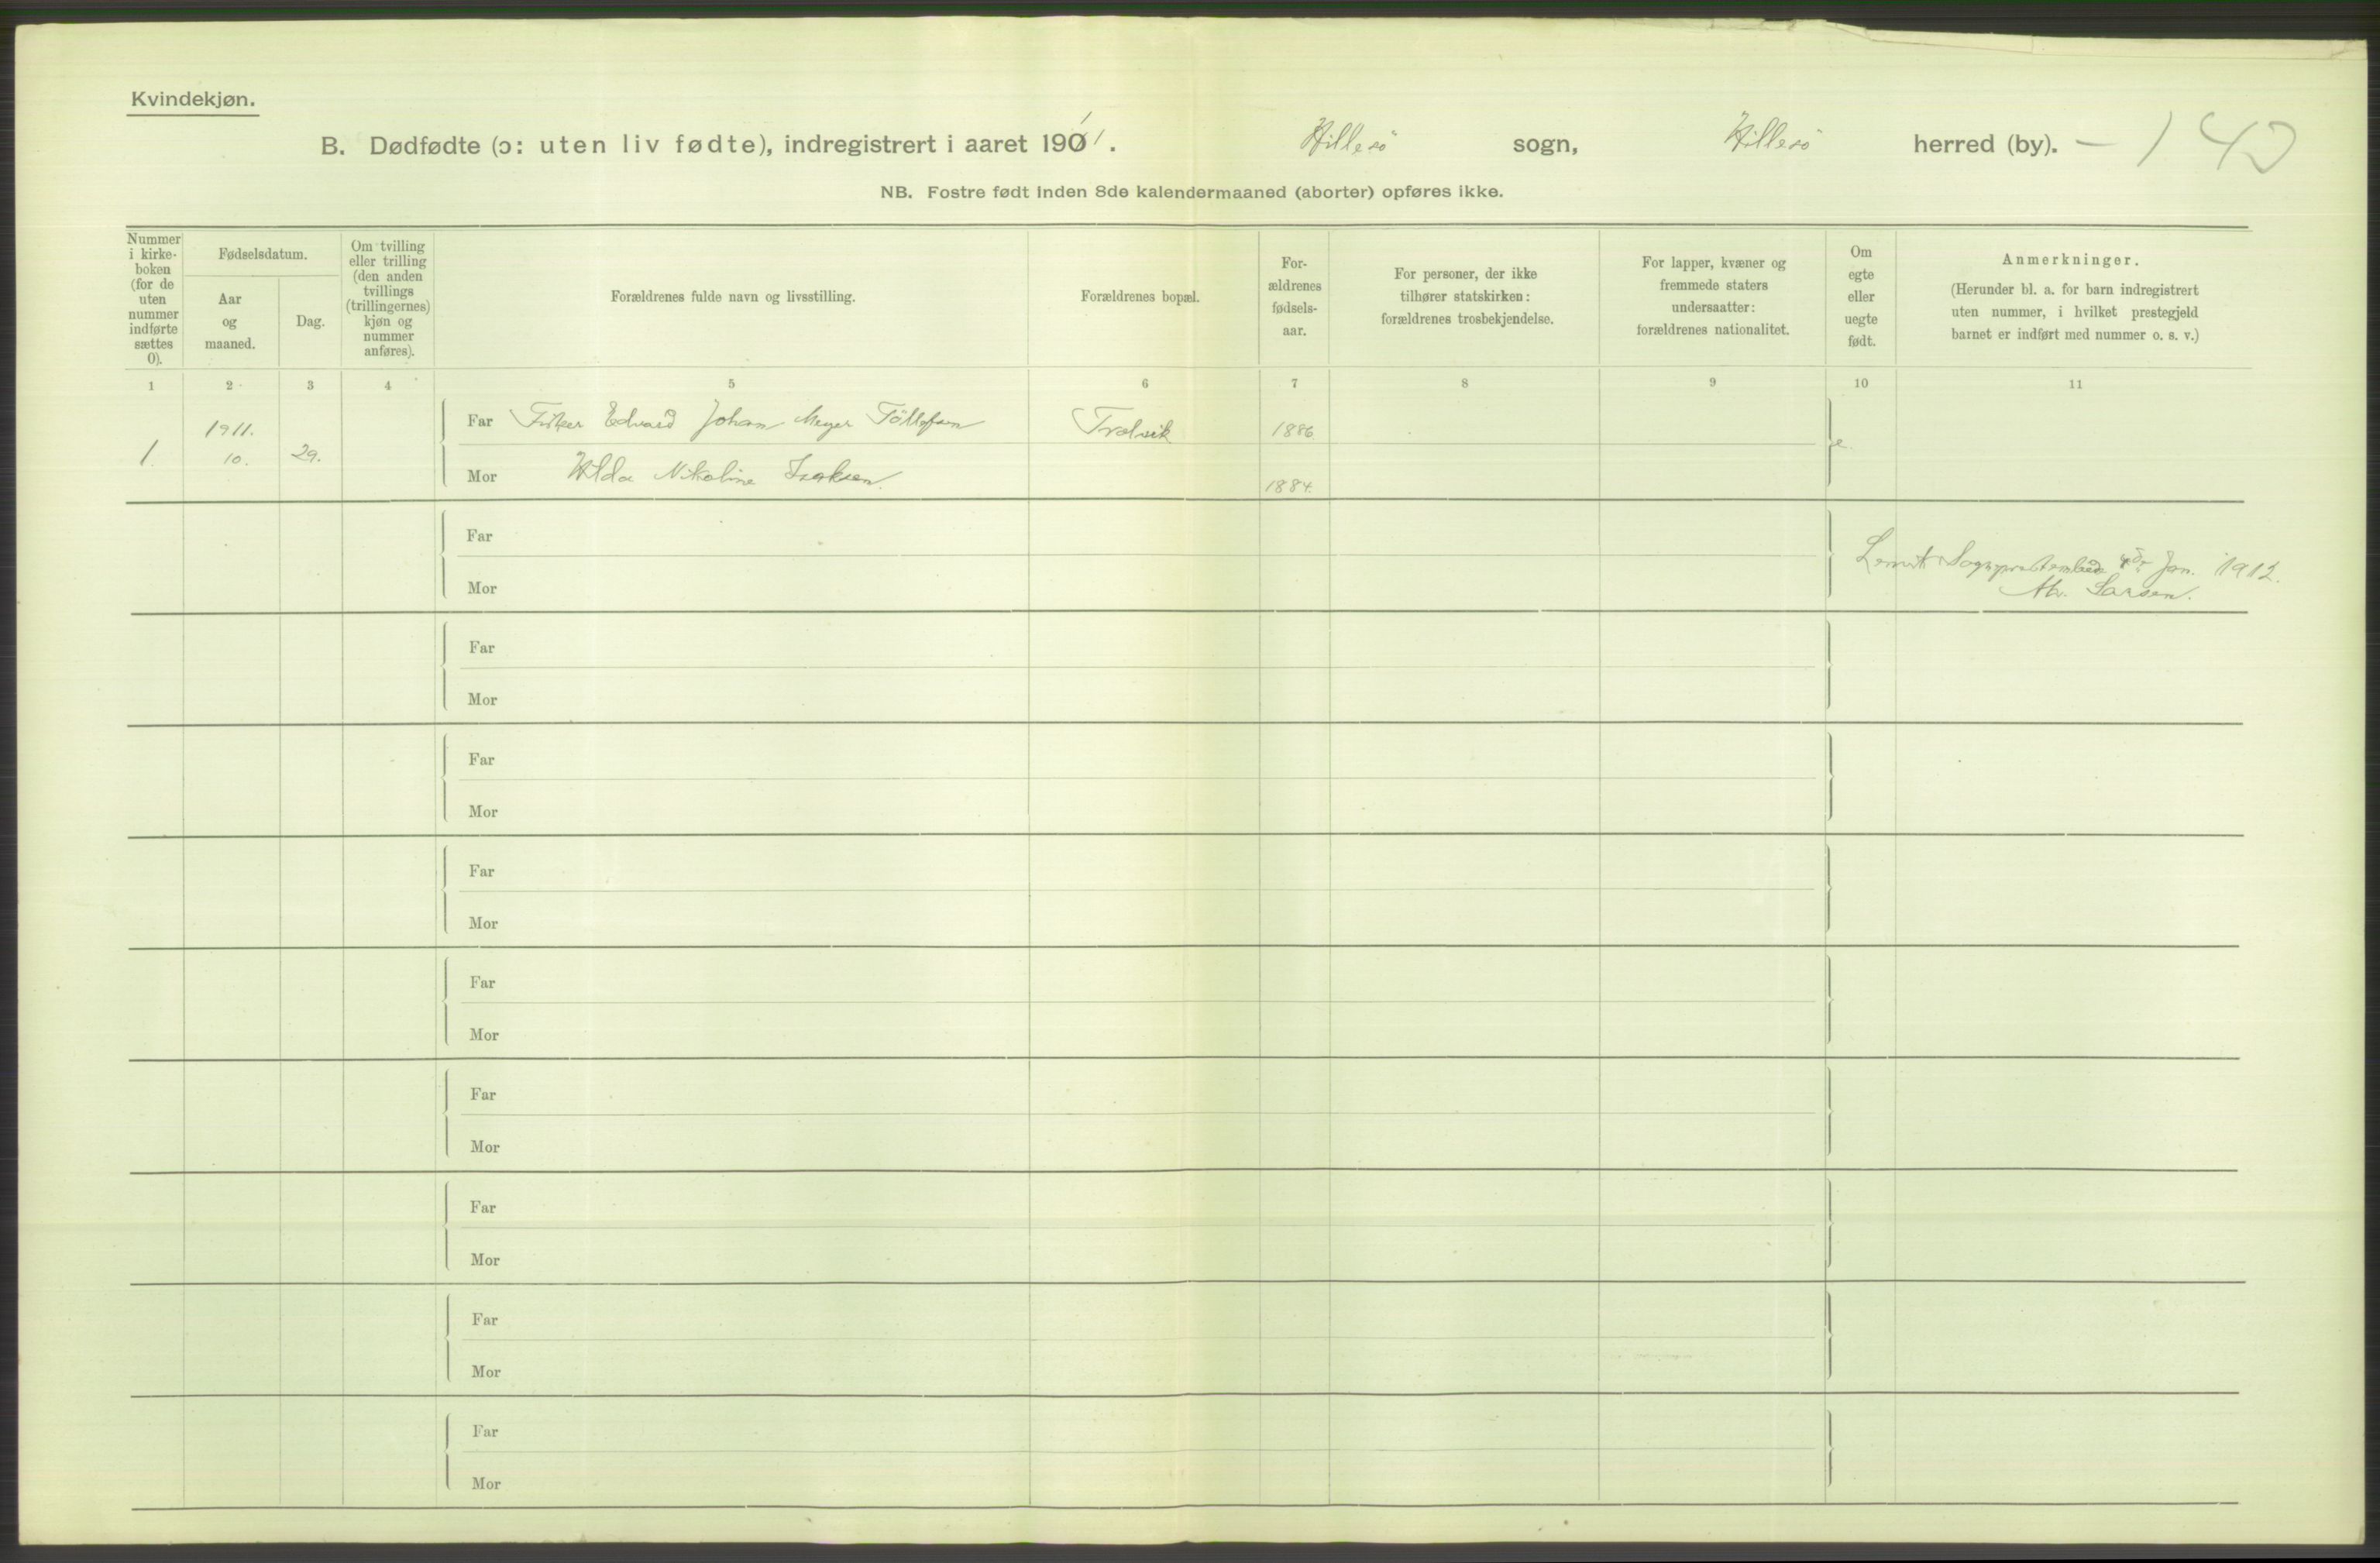 Kvindekjøn.
B. Dødfødte (ɔ: uten liv fødte), indregistrert i aaret 1911. Hillesö sogn, Hillesö herred (by). — 140
NB. Fostre født inden 8de kalendermaaned (aborter) opføres ikke.
Nummer i kirke-boken (for de uten nummer indførte sættes 0).
Fødselsdatum.
Aar og maaned.
Dag.
Om tvilling eller trilling (den anden tvillings (trillingernes) kjøn og nummer anføres).
Forældrenes fulde navn og livsstilling.
Forældrenes bopæl.
For-ældrenes fødsels-aar.
For personer, der ikke tilhører statskirken: forældrenes trosbekjendelse.
For lapper, kvæner og fremmede staters undersaatter: forældrenes nationalitet.
Om egte eller uegte født.
Anmerkninger.
(Herunder bl. a. for barn indregistrert uten nummer, i hvilket prestegjeld barnet er indført med nummer o. s. v.)
1 2 3 4 5 6 7 8 9 10 11
1. 1911. 10. 29. Far Fisker Edvard Johan Meyer Töllefsen 1886. e.
Mor Hilda Nikoline Isaksen. 1884.
Far
Lenvik Sogneprestembede 4de Jan. 1912.
Mor
Larsen.
Far
Mor
Far
Mor
Far
Mor
Far
Mor
Far
Mor
Far
Mor
Far
Mor
Far
Mor